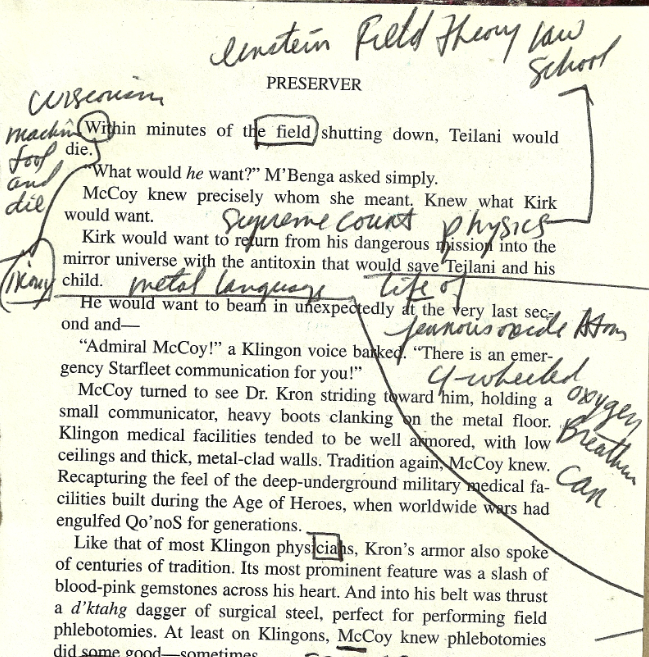 einstein Field Theory law
School
PRESERVER
wisconsin
Within minutes of the field shutting down, Teilani would
machin
die.
food
and
die
"What would he want?" M'Benga asked simply.
McCoy knew precisely whom she meant. Knew what Kirk
would want.
supreme court physics
Kirk would want to return from his dangerous mission into the
mirror universe with the antitoxin that would save Teilani and his
child.
metal language life of
He would want to beam in unexpectedly at the very last sec-
ond and—
oxide Atom
"Admiral McCoy!" a Klingon voice barked. "There is an emer-
gency Starfleet communication for you!"
4-wheeled
oxygen
Breathin
can
McCoy turned to see Dr. Kron striding toward him, holding a
small communicator, heavy boots clanking on the metal floor.
Klingon medical facilities tended to be well armored, with low
ceilings and thick, metal-clad walls. Tradition again, McCoy knew.
Recapturing the feel of the deep-underground military medical fa-
cilities built during the Age of Heroes, when worldwide wars had
engulfed Qo'noS for generations.
Like that of most Klingon physicians, Kron's armor also spoke
of centuries of tradition. Its most prominent feature was a slash of
blood-pink gemstones across his heart. And into his belt was thrust
a d'ktahg dagger of surgical steel, perfect for performing field
phlebotomies. At least on Klingons, McCoy knew phlebotomies
did some good—sometimes.